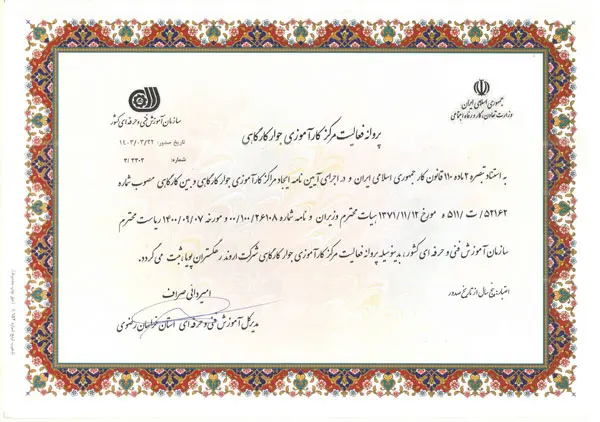 جمهوری اسلامی ایران
وزارت تعاون، کار و رفاه اجتماعی
سازمان آموزش فنی و حرفه ای کشور
تاریخ صدور: ۱۴۰۳/۰۳/۲۲
شماره: ۳/۳۳۰۲
پروانه فعالیت مرکز کارآموزی جوار کارگاهی
به استناد تبصره ۲ ماده ۱۱۰ قانون کار جمهوری اسلامی ایران و در اجرای آیین نامه ایجاد مراکز کارآموزی جوار کارگاهی و بین کارگاهی مصوب شماره
۵۲۱۶۲/ ت /۵۱۱ ه مورخ ۱۳۷۱/۱۱/۱۲ هیات محترم وزیران و نامه شماره ۰۰/۱۰۰/۲۶۱۰۸ مورخه ۱۴۰۰/۰۹/۰۷ ریاست محترم
سازمان آموزش فنی و حرفه ای کشور، بدینوسیله پروانه فعالیت مرکز کارآموزی جوار کارگاهی شرکت اروند رهگستران پویا، ثبت می گردد.
اعتبار: پنج سال از تاریخ صدور
امیر وانی صراف
مدیرکل آموزش فنی و حرفه ای استان خراسان رضوی